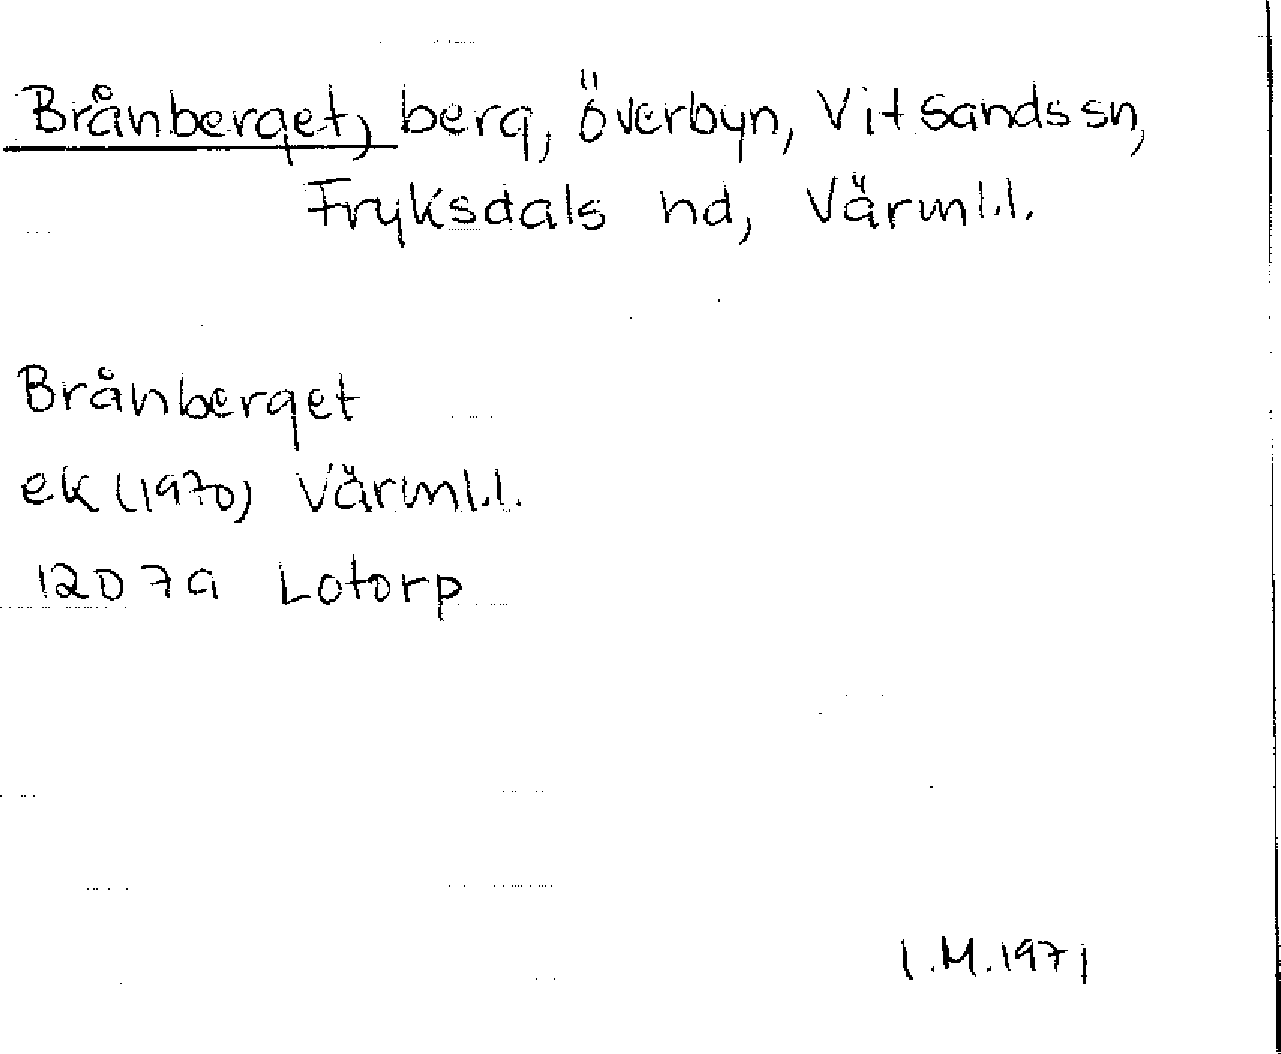 Brånberget, berg, överbyn, Vitsands sn,
Fryksdals hd, Värml.l.
Brånberget
ek (1970) Värml.l.
12D 7a Lotorp
I.M.1971